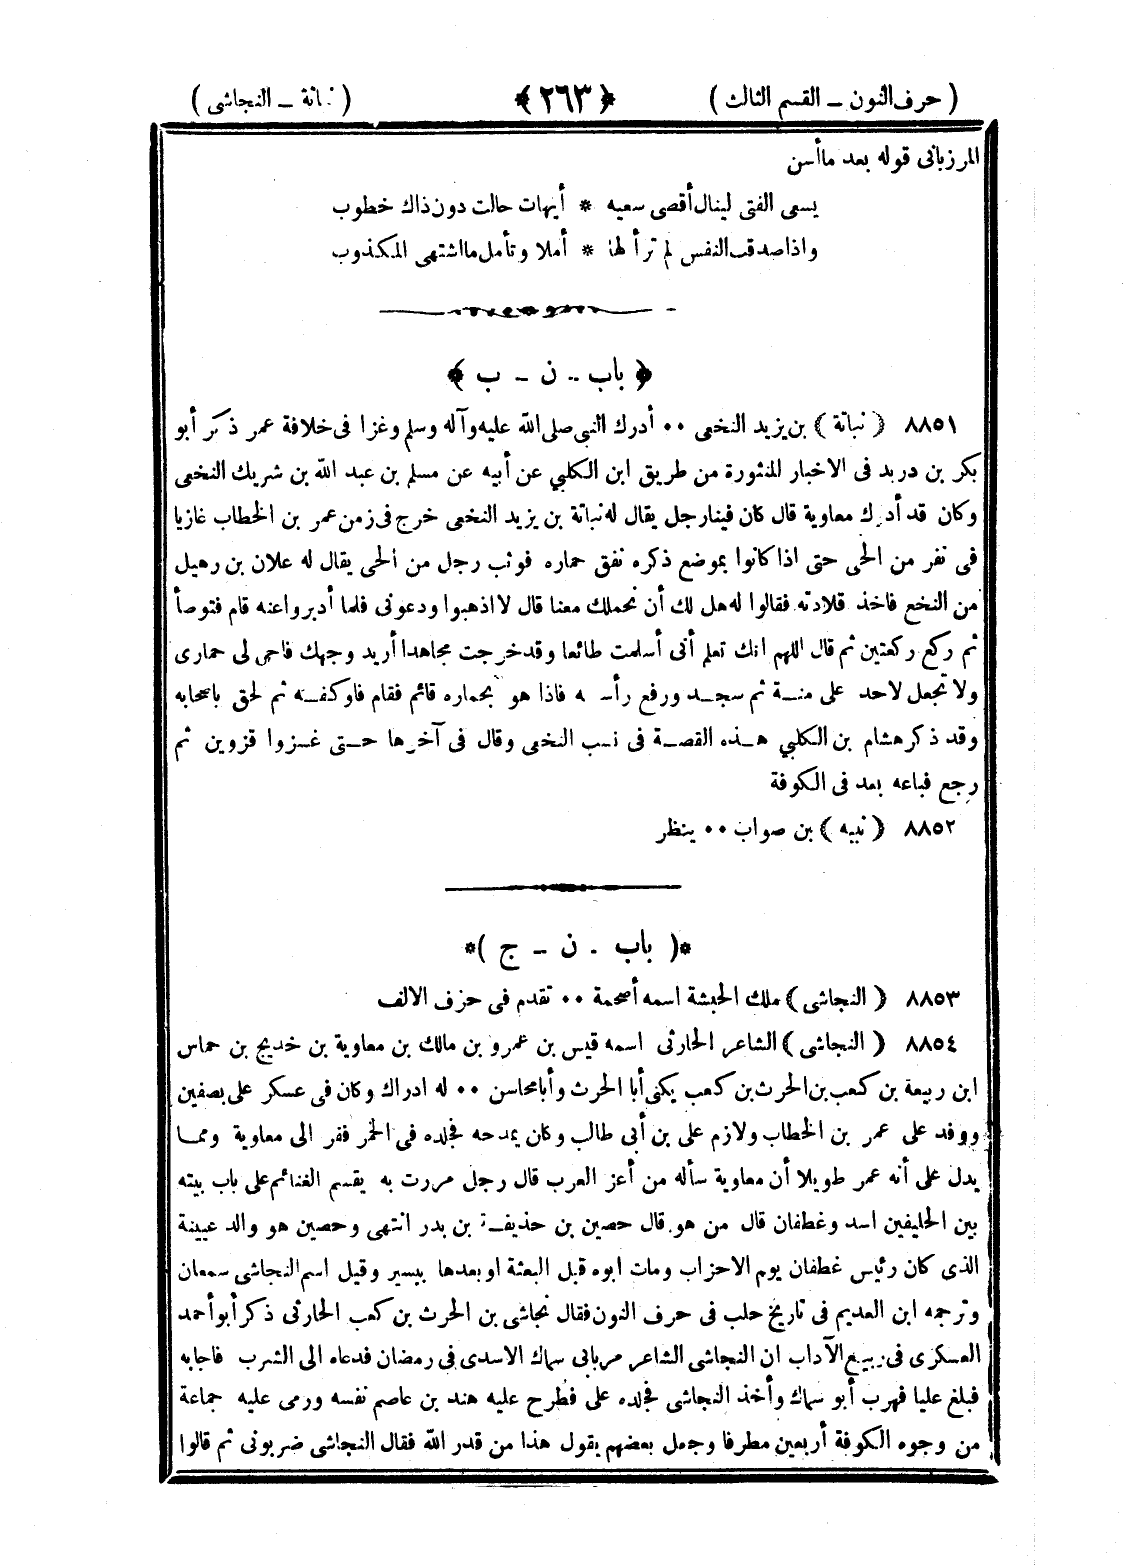 ( حرف النون ــ القسم الثالث ) ﴿ ٢٦٣ ﴾ ( نباتة ــ النجاشى )
المرزبانى قوله بعد ماأسن
يسعى الفتى لينال أقصى سعيه * أيهات حالت دون ذاك خطوب
واذا صدقت النفس لم ترأ لها * أملا وتأمل مااشتهى المكذوب
﴿ باب .. ن ــ ب ﴾
٨٨٥١ ( نباتة ) بن يزيد النخعى ٠٠ أدرك النبى صلى الله عليه وآله وسلم وغزا فى خلافة عمر ذكر أبو
بكر بن دريد فى الاخبار المنثورة من طريق ابن الكلبي عن أبيه عن مسلم بن عبد الله بن شريك النخعى
وكان قد أدرك معاوية قال كان فينا رجل يقال له نباتة بن يزيد النخعى خرج فى زمن عمر بن الخطاب غازيا
فى نفر من الحى حتى اذا كانوا بموضع ذكره نفق حماره فوثب رجل من الحى يقال له علان بن رهيل
من النخع فاخذ قلادته فقالوا له هل لك أن نحملك معنا قال لا اذهبوا ودعونى فلما أدبروا عنه قام فتوضأ
ثم ركع ركعتين ثم قال اللهم انك تعلم أنى أسلمت طائعا وقد خرجت مجاهدا أريد وجهك فاحى لى حمارى
ولا تجعل لاحد على منـة ثم سجـد ورفع رأسـه فاذا هو بحماره قائم فقام فاوكفـه ثم لحق باصحابه
وقد ذكر هشام بن الكلبي هـذه القصـة فى نسب النخعى وقال فى آخرها حـتى غـزوا قزوين ثم
رجع فباعه بعد فى الكوفة
٨٨٥٢ ( نبيه ) بن صواب ٠٠ ينظر
*( باب . ن ــ ج )*
٨٨٥٣ ( النجاشى ) ملك الحبشة اسمه أصحمة ٠٠ تقدم فى حزف الالف
٨٨٥٤ ( النجاشى ) الشاعر الحارثى اسمه قيس بن عمرو بن مالك بن معاوية بن خديج بن حماس
ابن ربيعة بن كعب بن الحرث بن كعب يكنى أبا الحرث وأبا محاسن ٠٠ له ادراك وكان فى عسكر على بصفين
ووفد على عمر بن الخطاب ولازم على بن أبى طالب وكان يمدحه فجلده فى الخمر ففر الى معاوية ومما
يدل على أنه عمر طويلا أن معاوية سأله من أعز العرب قال رجل مررت به يقسم الغنائم على باب بيته
بين الحليفين اسد وغطفان قال من هو قال حصين بن حذيفـة بن بدر انتهى وحصين هو والد عيينة
الذى كان رئيس غطفان يوم الاحزاب ومات ابوه قبل البعثة او بعدها بيسير وقيل اسم النجاشى سمعان
وترجمه ابن العديم فى تاريخ حلب فى حرف النون فقال نجاشى بن الحرث بن كعب الحارثى ذكر أبو أحمد
العسكرى فى ربيع الآداب ان النجاشى الشاعر مر بابى سماك الاسدى فى رمضان فدعاه الى الشرب فاجابه
فبلغ عليا فهرب أبو سماك وأخذ النجاشى فجلده على فطرح عليه هند بن عاصم نفسه ورمى عليه جماعة
من وجوه الكوفة أربعين مطرفا وجعل بعضهم يقول هذا من قدر الله فقال النجاشى ضربونى ثم قالوا